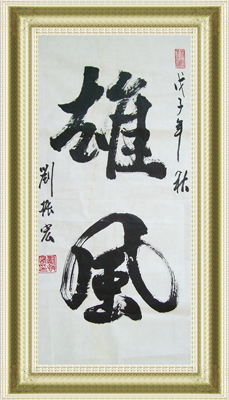 雄風
戊子年秋
劉振宏